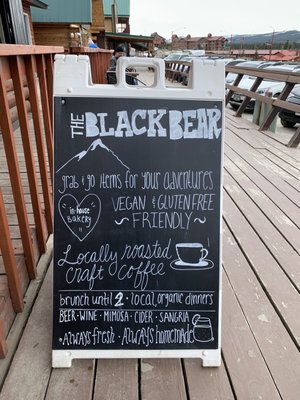 THE BLACK BEAR
grab & go items for your adventures
in-house Bakery
VEGAN & GLUTEN FREE
~ FRIENDLY ~
Locally roasted
craft coffee
brunch until 2 · local, organic dinners
BEER · WINE · MIMOSA · CIDER · SANGRIA
· Always fresh · Always homemade